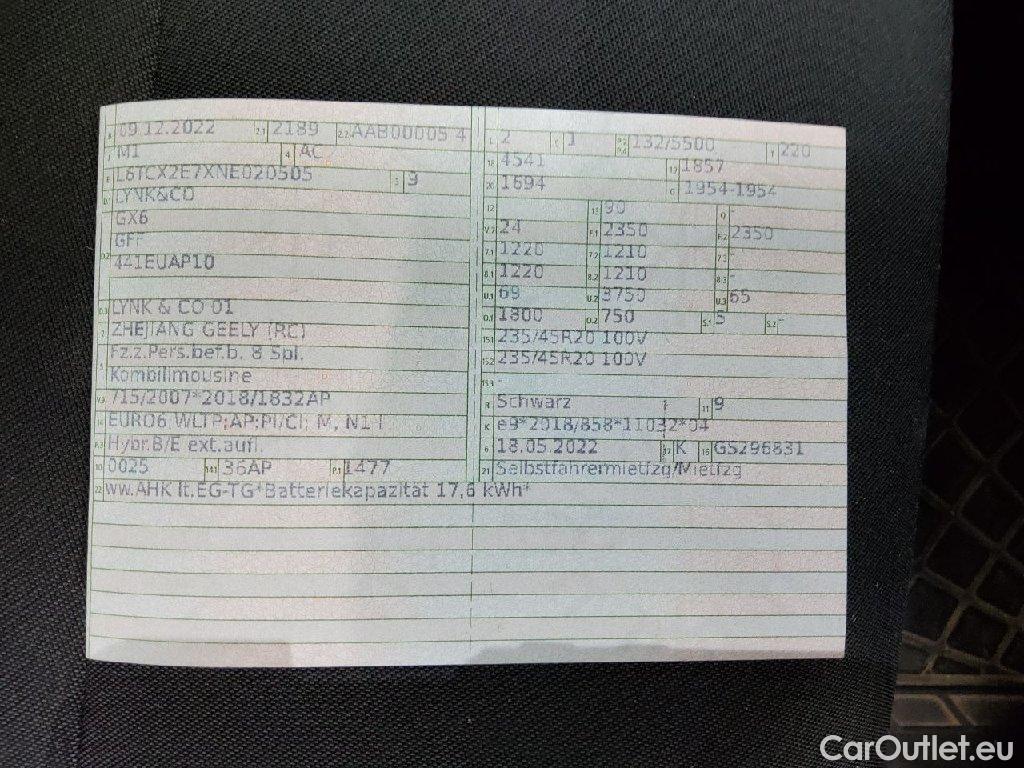 09.12.2022 2.1 2189 2.2 AAB00005 4
J M1 4 AC
E L6TCX2E7XNE020505 3 9
D.1 LYNK&CO
GX6
D.2 GFF
441EUAP10
D.3 LYNK & CO 01
2 ZHEJIANG GEELY (RC)
5 Fz.z.Pers.bef.b. 8 Spl.
Kombilimousine
V.9 715/2007*2018/1832AP
14 EURO6;WLTP;AP;PI/CI; M, N1 I
P.3 Hybr.B/E ext.aufl.
10 0025 14.1 36AP P.1 1477
22 ww.AHK lt.EG-TG*Batteriekapazität 17,6 kWh*
L 2 1 P.2 P.4 132/5500 T 220
18 4541 19 1857
20 1694 G 1954-1954
12 - 13 90 Q -
V.7 24 F.1 2350 F.2 2350
7.1 1220 7.2 1210 7.3 -
8.1 1220 8.2 1210 8.3 -
U.1 69 U.2 3750 U.3 65
O.1 1800 O.2 750 S.1 5 S.2 -
15.1 235/45R20 100V
15.2 235/45R20 100V
15.3 -
R Schwarz 11 9
K e9*2018/858*11032*04
6 18.05.2022 17 K 16 GS296831
21 Selbstfahrermietfzg/Mietfzg
CarOutlet.eu